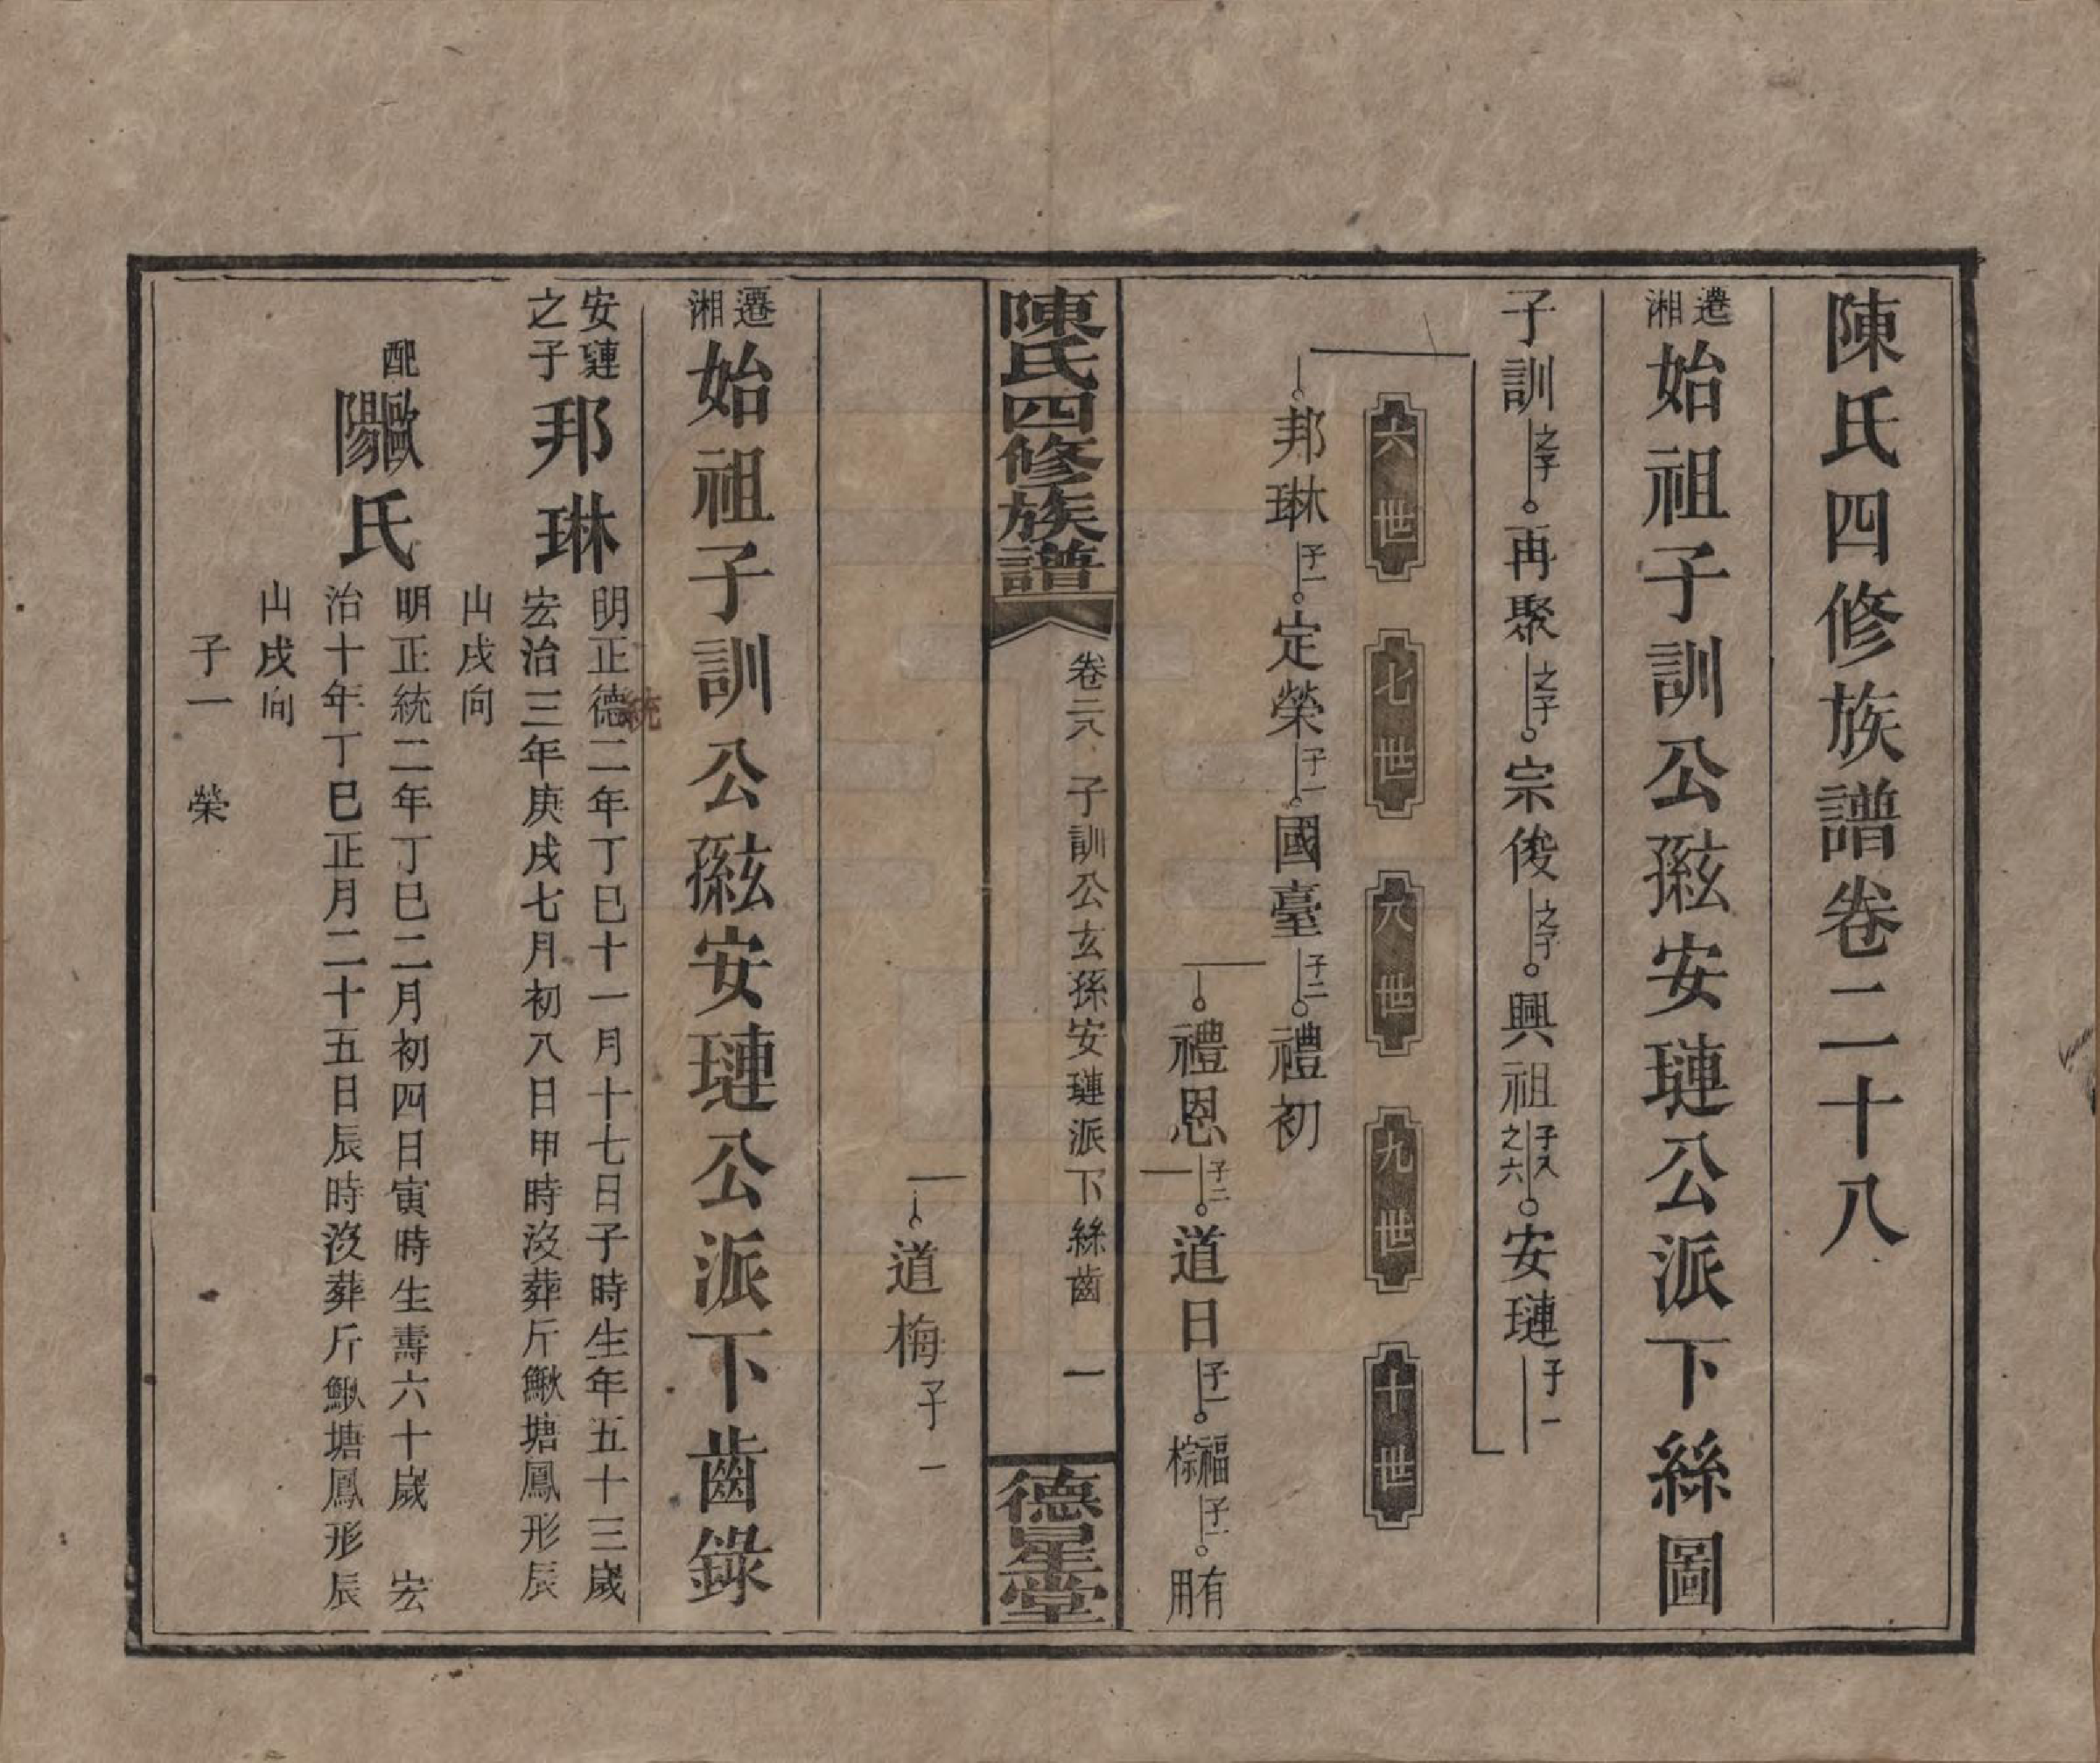 陳氏四修族譜卷二十八
遷湘始祖子訓公玄孫安璉公派下絲圖
子訓之子再聚之子宗俊之子興祖子八之六安璉子一
六世 七世 八世 九世 十世
邦琳子一定榮子一國臺子二禮初
禮恩子二道日子一福棕子一有用
陳氏四修族譜 卷二八 子訓公玄孫安璉派下絲齒 一 德星堂
道梅子一
遷湘始祖子訓公玄孫安璉公派下齒錄
安璉之子邦琳
明正德二年丁巳十一月十七日子時生年五十三歲
統
宏治三年庚戌七月初八日甲時沒葬斤鰍塘鳳形辰
山戌向
配歐陽氏
明正統二年丁巳二月初四日寅時生壽六十歲 宏
治十年丁巳正月二十五日辰時沒葬斤鰍塘鳳形辰
山戌向
子一 榮